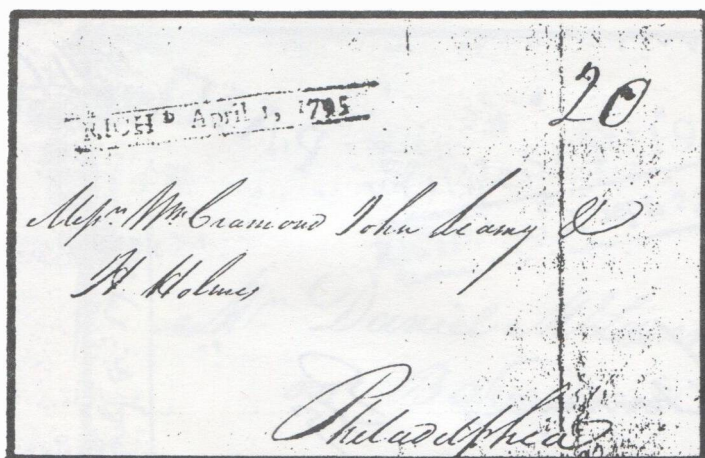 RICHD April 1, 1795
20
Messrs Wm Cramond John Leamy &
H Holmes
Philadelphia